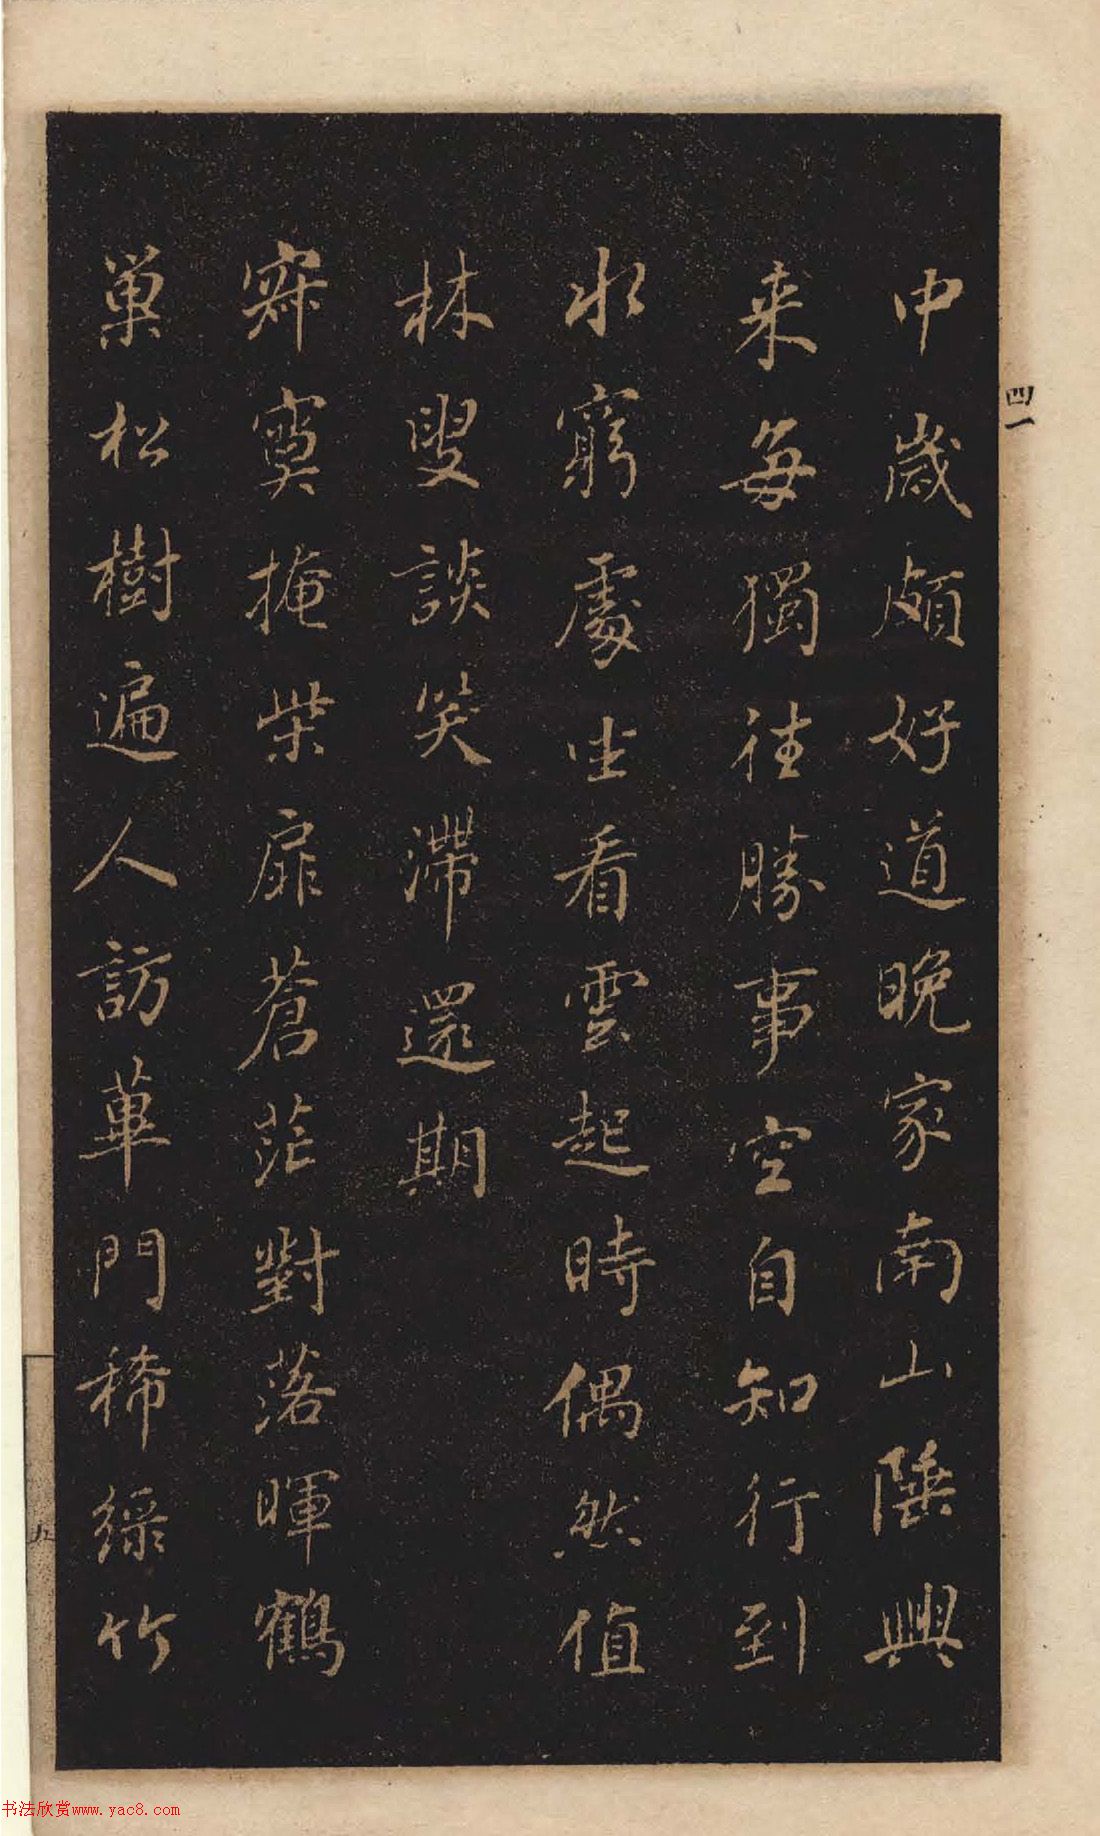 中歲頗好道晚家南山陲興
来每獨往勝事空自知行到
水窮處坐看雲起時偶然值
林叟談笑滯還期
寂寞掩柴扉蒼茫對落暉鶴
巢松樹遍人訪蓽門稀綠竹
四一
五
书法欣赏www.yac8.com